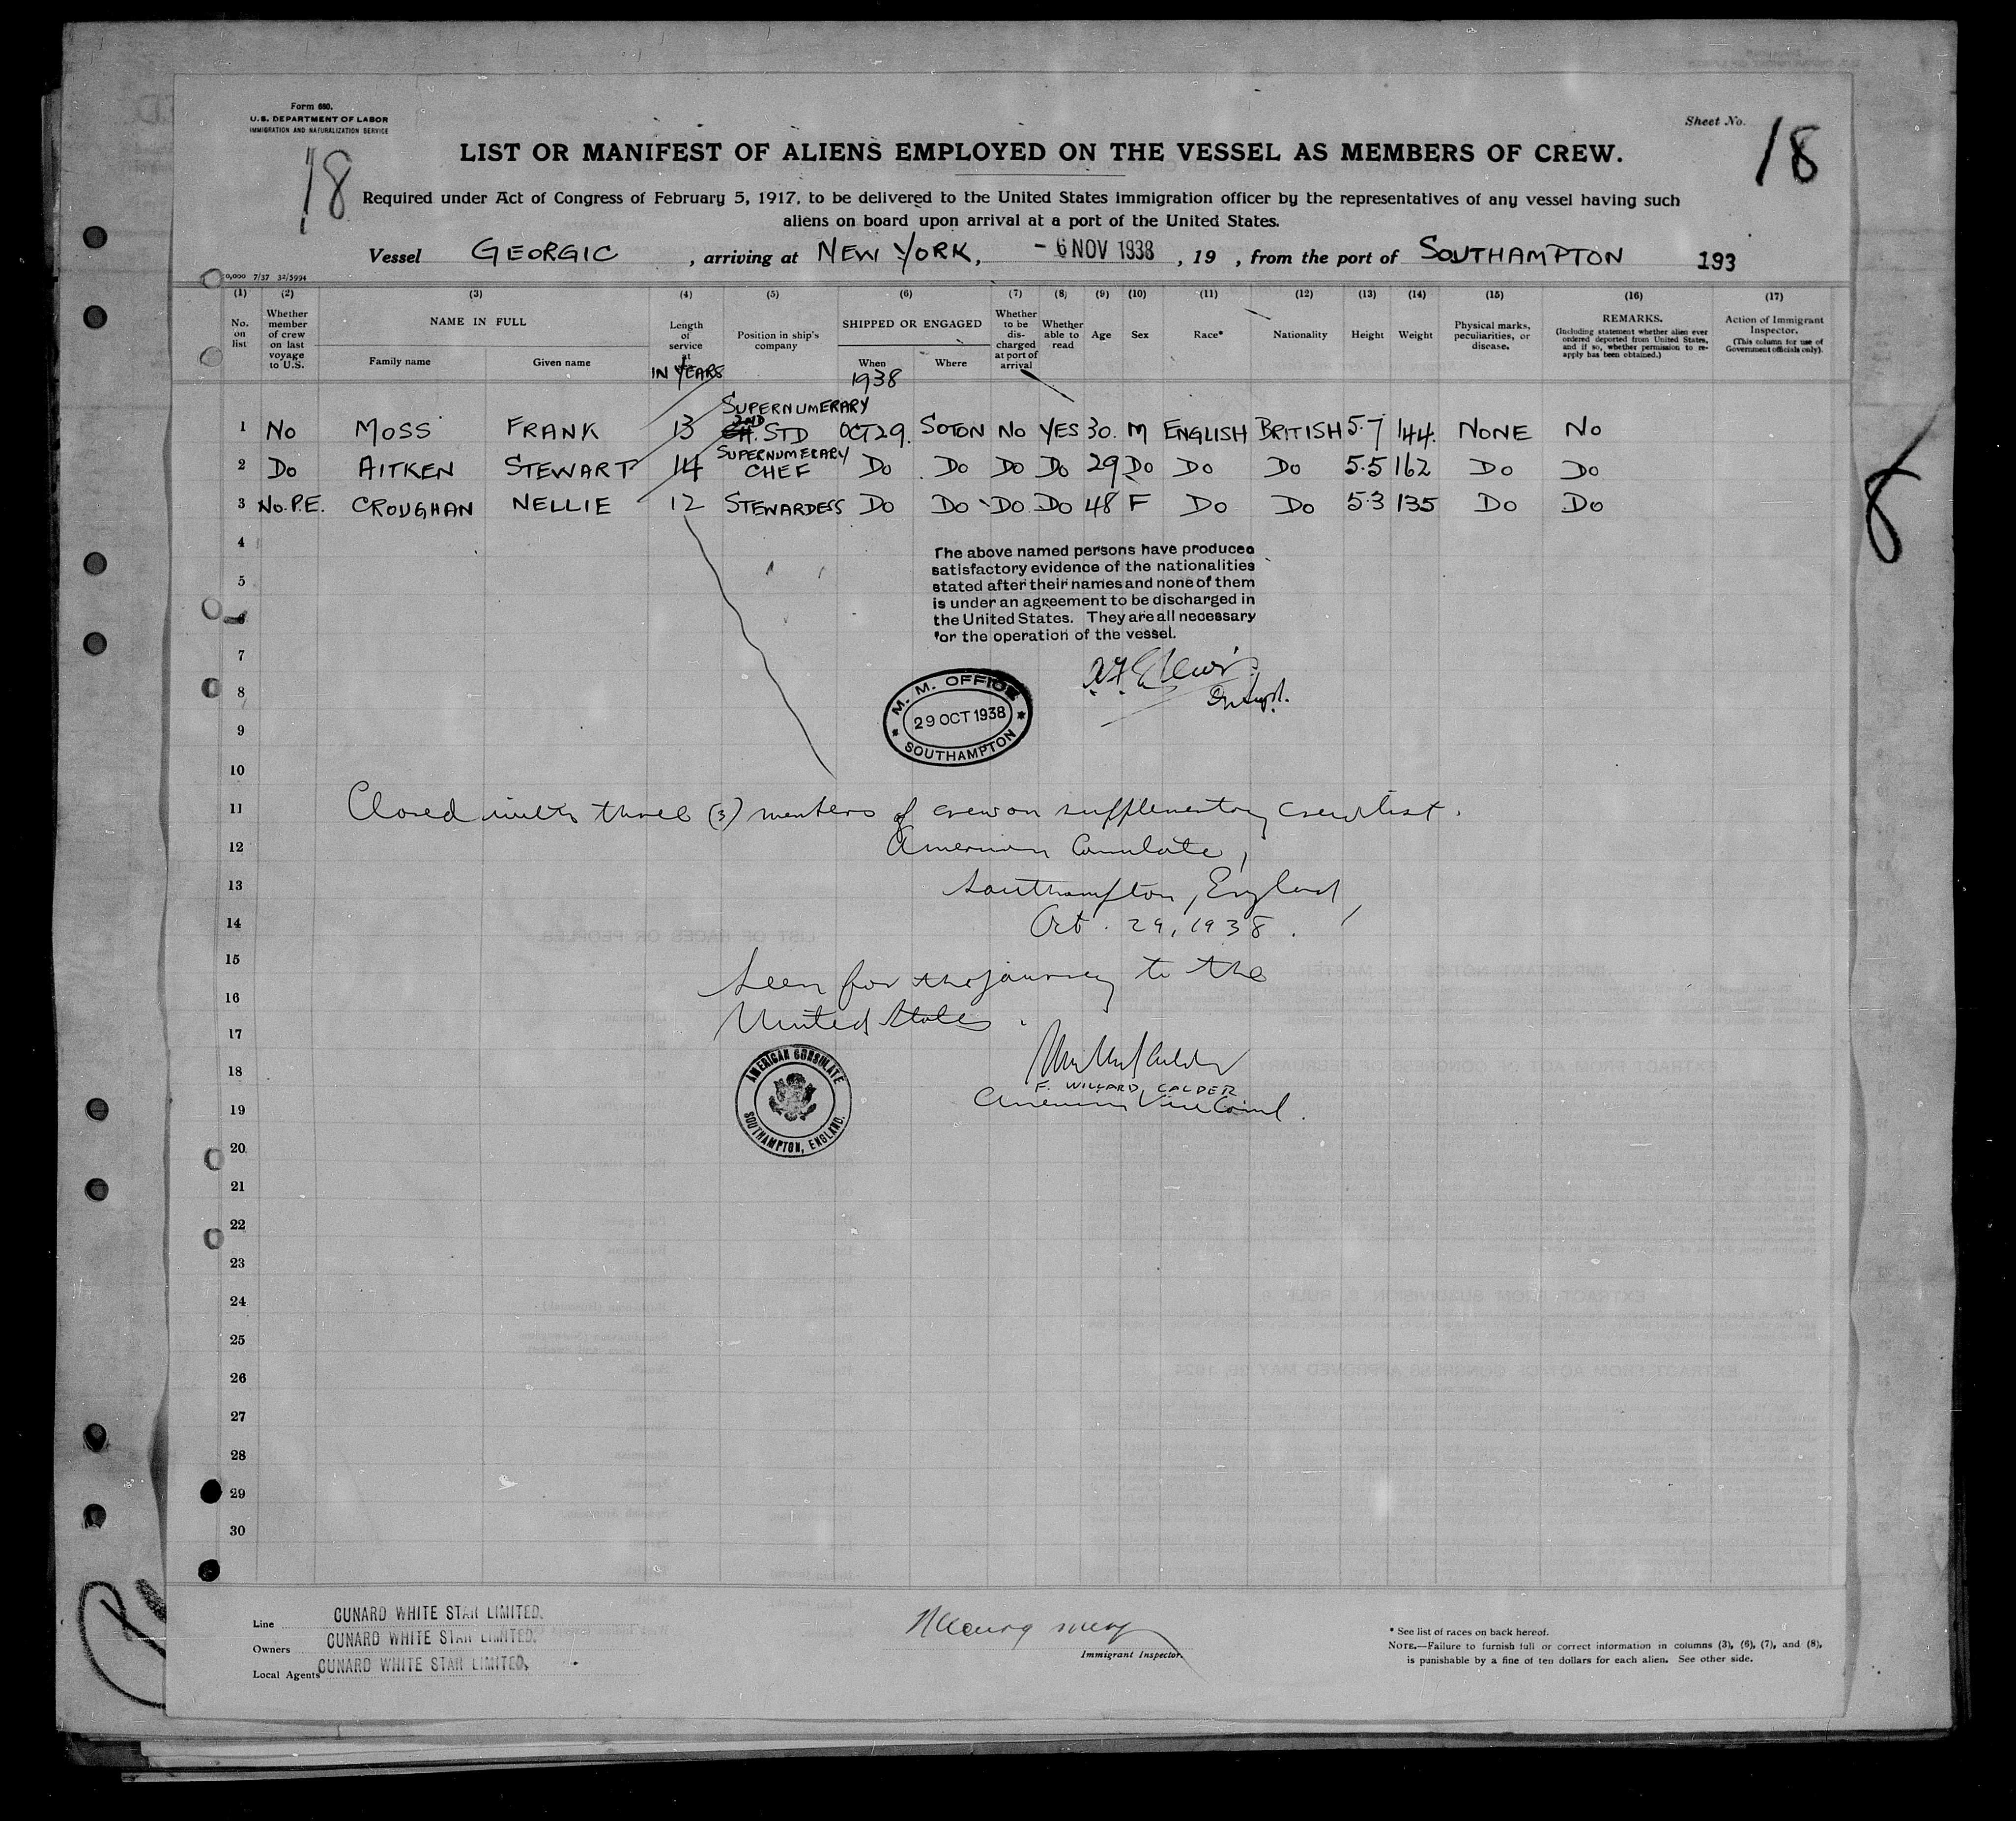 Form 680.
U.S. DEPARTMENT OF LABOR
IMMIGRATION AND NATURALIZATION SERVICE
Sheet No. 18
18
LIST OR MANIFEST OF ALIENS EMPLOYED ON THE VESSEL AS MEMBERS OF CREW.
Required under Act of Congress of February 5, 1917, to be delivered to the United States immigration officer by the representatives of any vessel having such
aliens on board upon arrival at a port of the United States.
Vessel GEORGIC, arriving at NEW YORK, - 6 NOV 1938, 19 , from the port of SOUTHAMPTON 193
0,000 7/37 32/5994
(1) (2) (3) (4) (5) (6) (7) (8) (9) (10) (11) (12) (13) (14) (15) (16) (17)
No. on list
Whether member of crew on last voyage to U.S.
NAME IN FULL
Family name Given name
Length of service at
IN YEARS
Position in ship's company
SHIPPED OR ENGAGED
When Where
1938
Whether to be discharged at port of arrival
Whether able to read
Age Sex Race* Nationality Height Weight
Physical marks, peculiarities, or disease.
REMARKS.
(Including statement whether alien ever ordered deported from United States, and if so, whether permission to re-apply has been obtained.)
Action of Immigrant Inspector.
(This column for use of Government officials only).
SUPERNUMERARY
1 NO MOSS FRANK 13 CH. 2ND STD OCT 29. SOTON NO YES 30. M ENGLISH BRITISH 5.7 144. NONE NO
SUPERNUMERARY
2 DO AITKEN STEWART 14 CHEF DO DO DO DO 29 DO DO DO 5.5 162 DO DO
3 NO. P.E. CROUGHAN NELLIE 12 STEWARDESS DO DO DO DO 48 F DO DO 5.3 135 DO DO
4
5
6
7
8
9
10
11
12
13
14
15
16
17
18
19
20
21
22
23
24
25
26
27
28
29
30
The above named persons have produced
satisfactory evidence of the nationalities
stated after their names and none of them
is under an agreement to be discharged in
the United States. They are all necessary
for the operation of the vessel.
M. M. OFFICE
29 OCT 1938
SOUTHAMPTON
Closed with three (3) members of crew on supplementary crew list.
American Consulate,
Southampton, England,
Oct. 29, 1938.
Seen for the journey to the
United States.
AMERICAN CONSULATE
SOUTHAMPTON, ENGLAND.
F. WILLARD CALDER
American Vice Consul.
8
Line CUNARD WHITE STAR LIMITED.
Owners CUNARD WHITE STAR LIMITED.
Local Agents CUNARD WHITE STAR LIMITED.
Immigrant Inspector.
* See list of races on back hereof.
NOTE.—Failure to furnish full or correct information in columns (3), (6), (7), and (8),
is punishable by a fine of ten dollars for each alien. See other side.